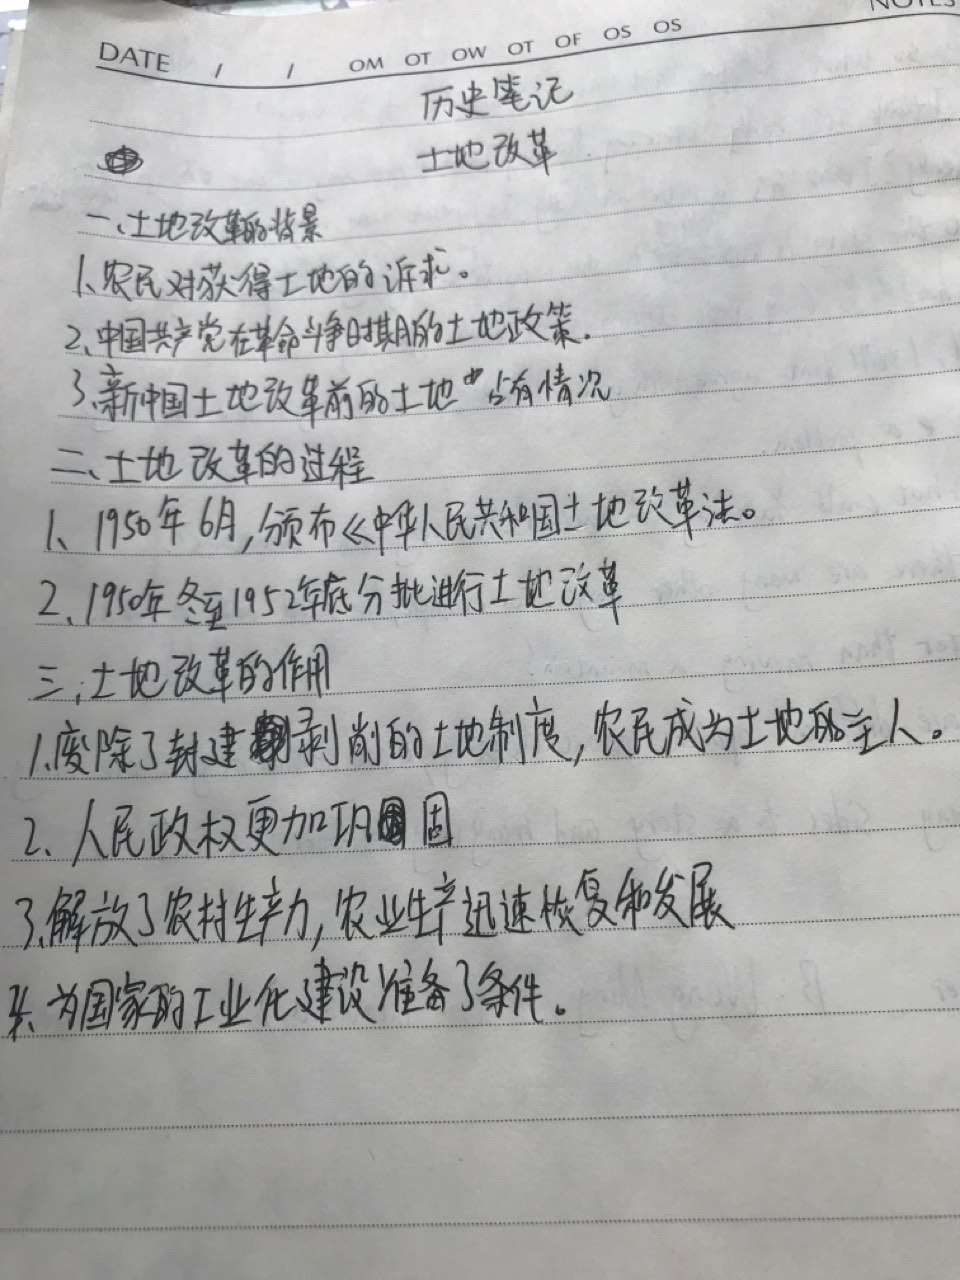 DATE / / OM OT OW OT OF OS OS NOTES
历史笔记
土地改革
一、土地改革的背景
1、农民对获得土地的诉求。
2、中国共产党在革命斗争时期的土地政策.
3、新中国土地改革前的土地占有情况
二、土地改革的过程
1、1950年6月,颁布《中华人民共和国土地改革法。
2、1950年冬至1952年底分批进行土地改革
三、土地改革的作用
1、废除了封建剥削的土地制度,农民成为土地的主人。
2、人民政权更加巩固
3、解放了农村生产力,农业生产迅速恢复和发展
4、为国家的工业化建设准备了条件。